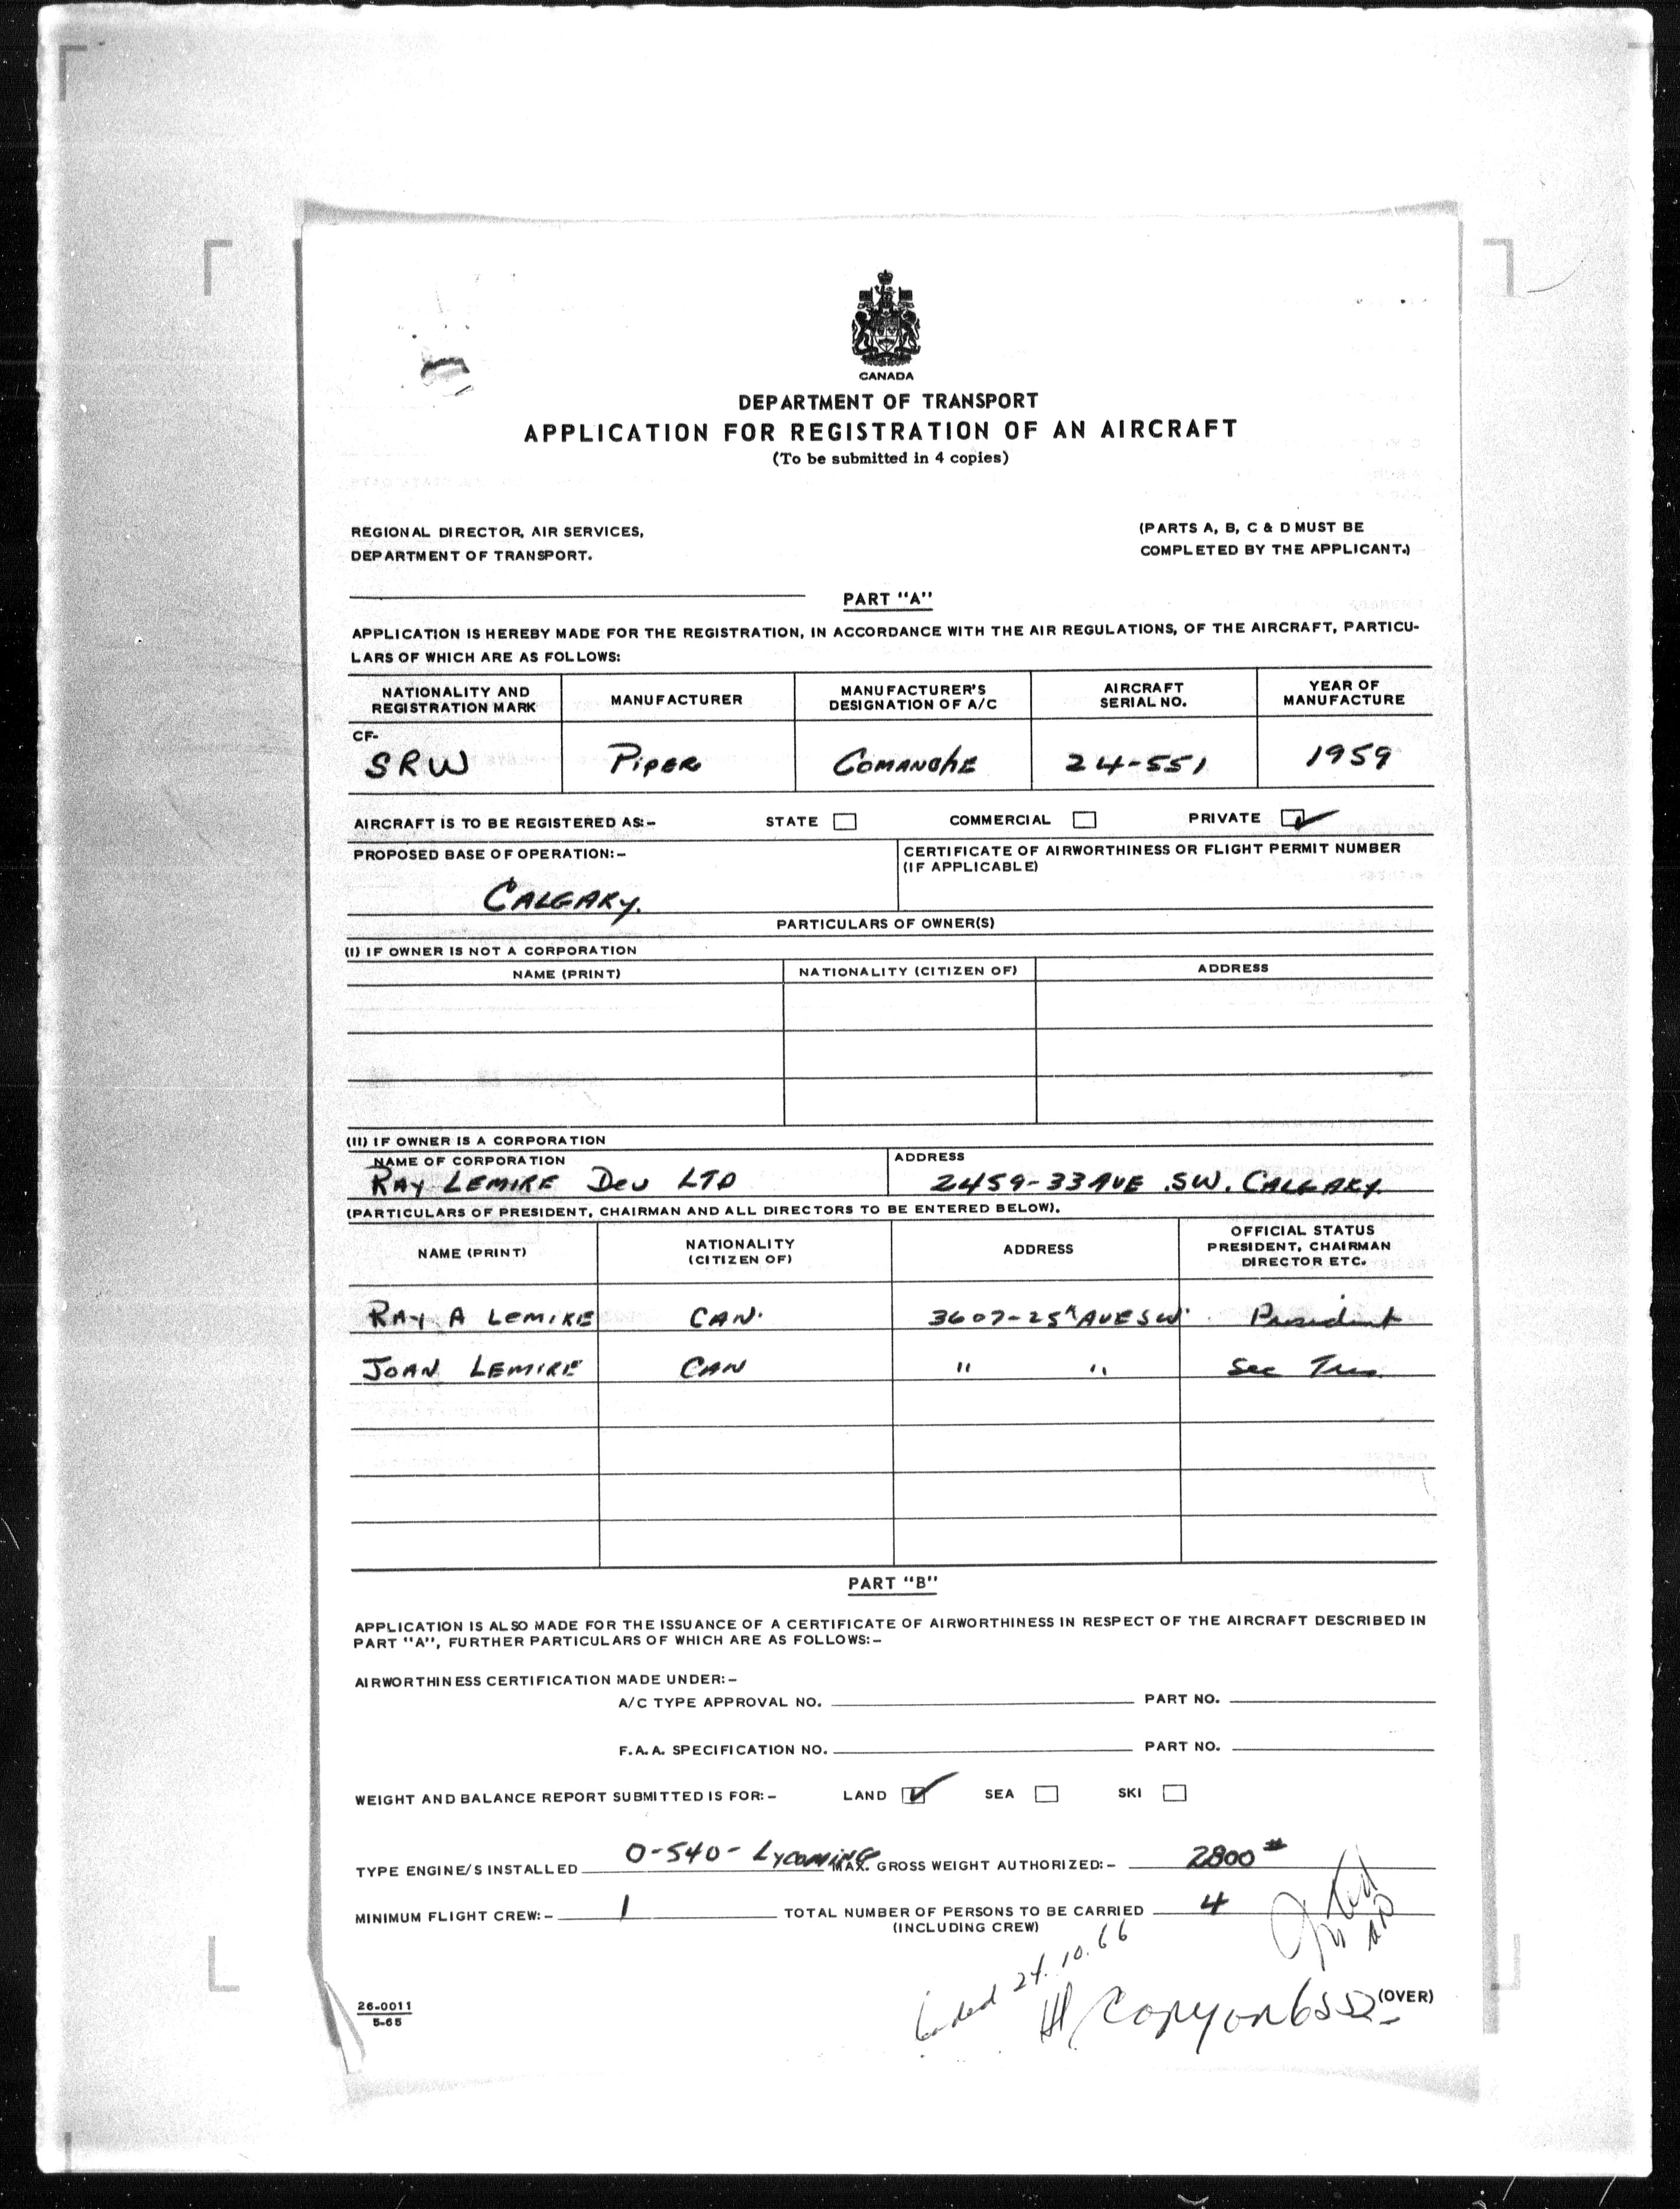 CANADA
DEPARTMENT OF TRANSPORT
APPLICATION FOR REGISTRATION OF AN AIRCRAFT
(To be submitted in 4 copies)
REGIONAL DIRECTOR, AIR SERVICES,
DEPARTMENT OF TRANSPORT.
(PARTS A, B, C & D MUST BE
COMPLETED BY THE APPLICANT.)
PART "A"
APPLICATION IS HEREBY MADE FOR THE REGISTRATION, IN ACCORDANCE WITH THE AIR REGULATIONS, OF THE AIRCRAFT, PARTICU-
LARS OF WHICH ARE AS FOLLOWS:
NATIONALITY AND REGISTRATION MARK MANUFACTURER MANUFACTURER'S DESIGNATION OF A/C AIRCRAFT SERIAL NO. YEAR OF MANUFACTURE
CF-
SRW PIPER COMANCHE 24-551 1959
AIRCRAFT IS TO BE REGISTERED AS:- STATE COMMERCIAL PRIVATE
PROPOSED BASE OF OPERATION:-
CALGARY.
CERTIFICATE OF AIRWORTHINESS OR FLIGHT PERMIT NUMBER
(IF APPLICABLE)
PARTICULARS OF OWNER(S)
(I) IF OWNER IS NOT A CORPORATION
NAME (PRINT) NATIONALITY (CITIZEN OF) ADDRESS
(II) IF OWNER IS A CORPORATION
NAME OF CORPORATION ADDRESS
RAY LEMIRE DEV LTD 2459-33 AVE .SW. CALGARY.
(PARTICULARS OF PRESIDENT, CHAIRMAN AND ALL DIRECTORS TO BE ENTERED BELOW).
NAME (PRINT) NATIONALITY (CITIZEN OF) ADDRESS OFFICIAL STATUS PRESIDENT, CHAIRMAN DIRECTOR ETC.
RAY A LEMIRE CAN. 3607-25 AVE SW President
JOAN LEMIRE CAN " " Sec Tres
PART "B"
APPLICATION IS ALSO MADE FOR THE ISSUANCE OF A CERTIFICATE OF AIRWORTHINESS IN RESPECT OF THE AIRCRAFT DESCRIBED IN
PART "A", FURTHER PARTICULARS OF WHICH ARE AS FOLLOWS:-
AIRWORTHINESS CERTIFICATION MADE UNDER:-
A/C TYPE APPROVAL NO. PART NO.
F.A.A. SPECIFICATION NO. PART NO.
WEIGHT AND BALANCE REPORT SUBMITTED IS FOR:- LAND SEA SKI
TYPE ENGINE/S INSTALLED O-540- LYCOMING MAX. GROSS WEIGHT AUTHORIZED:- 2800 #
MINIMUM FLIGHT CREW:- 1 TOTAL NUMBER OF PERSONS TO BE CARRIED 4
(INCLUDING CREW)
24.10.66
Copy on 6552
(OVER)
26-0011
5-65